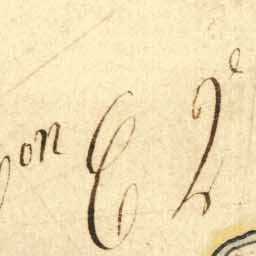 on E 2e